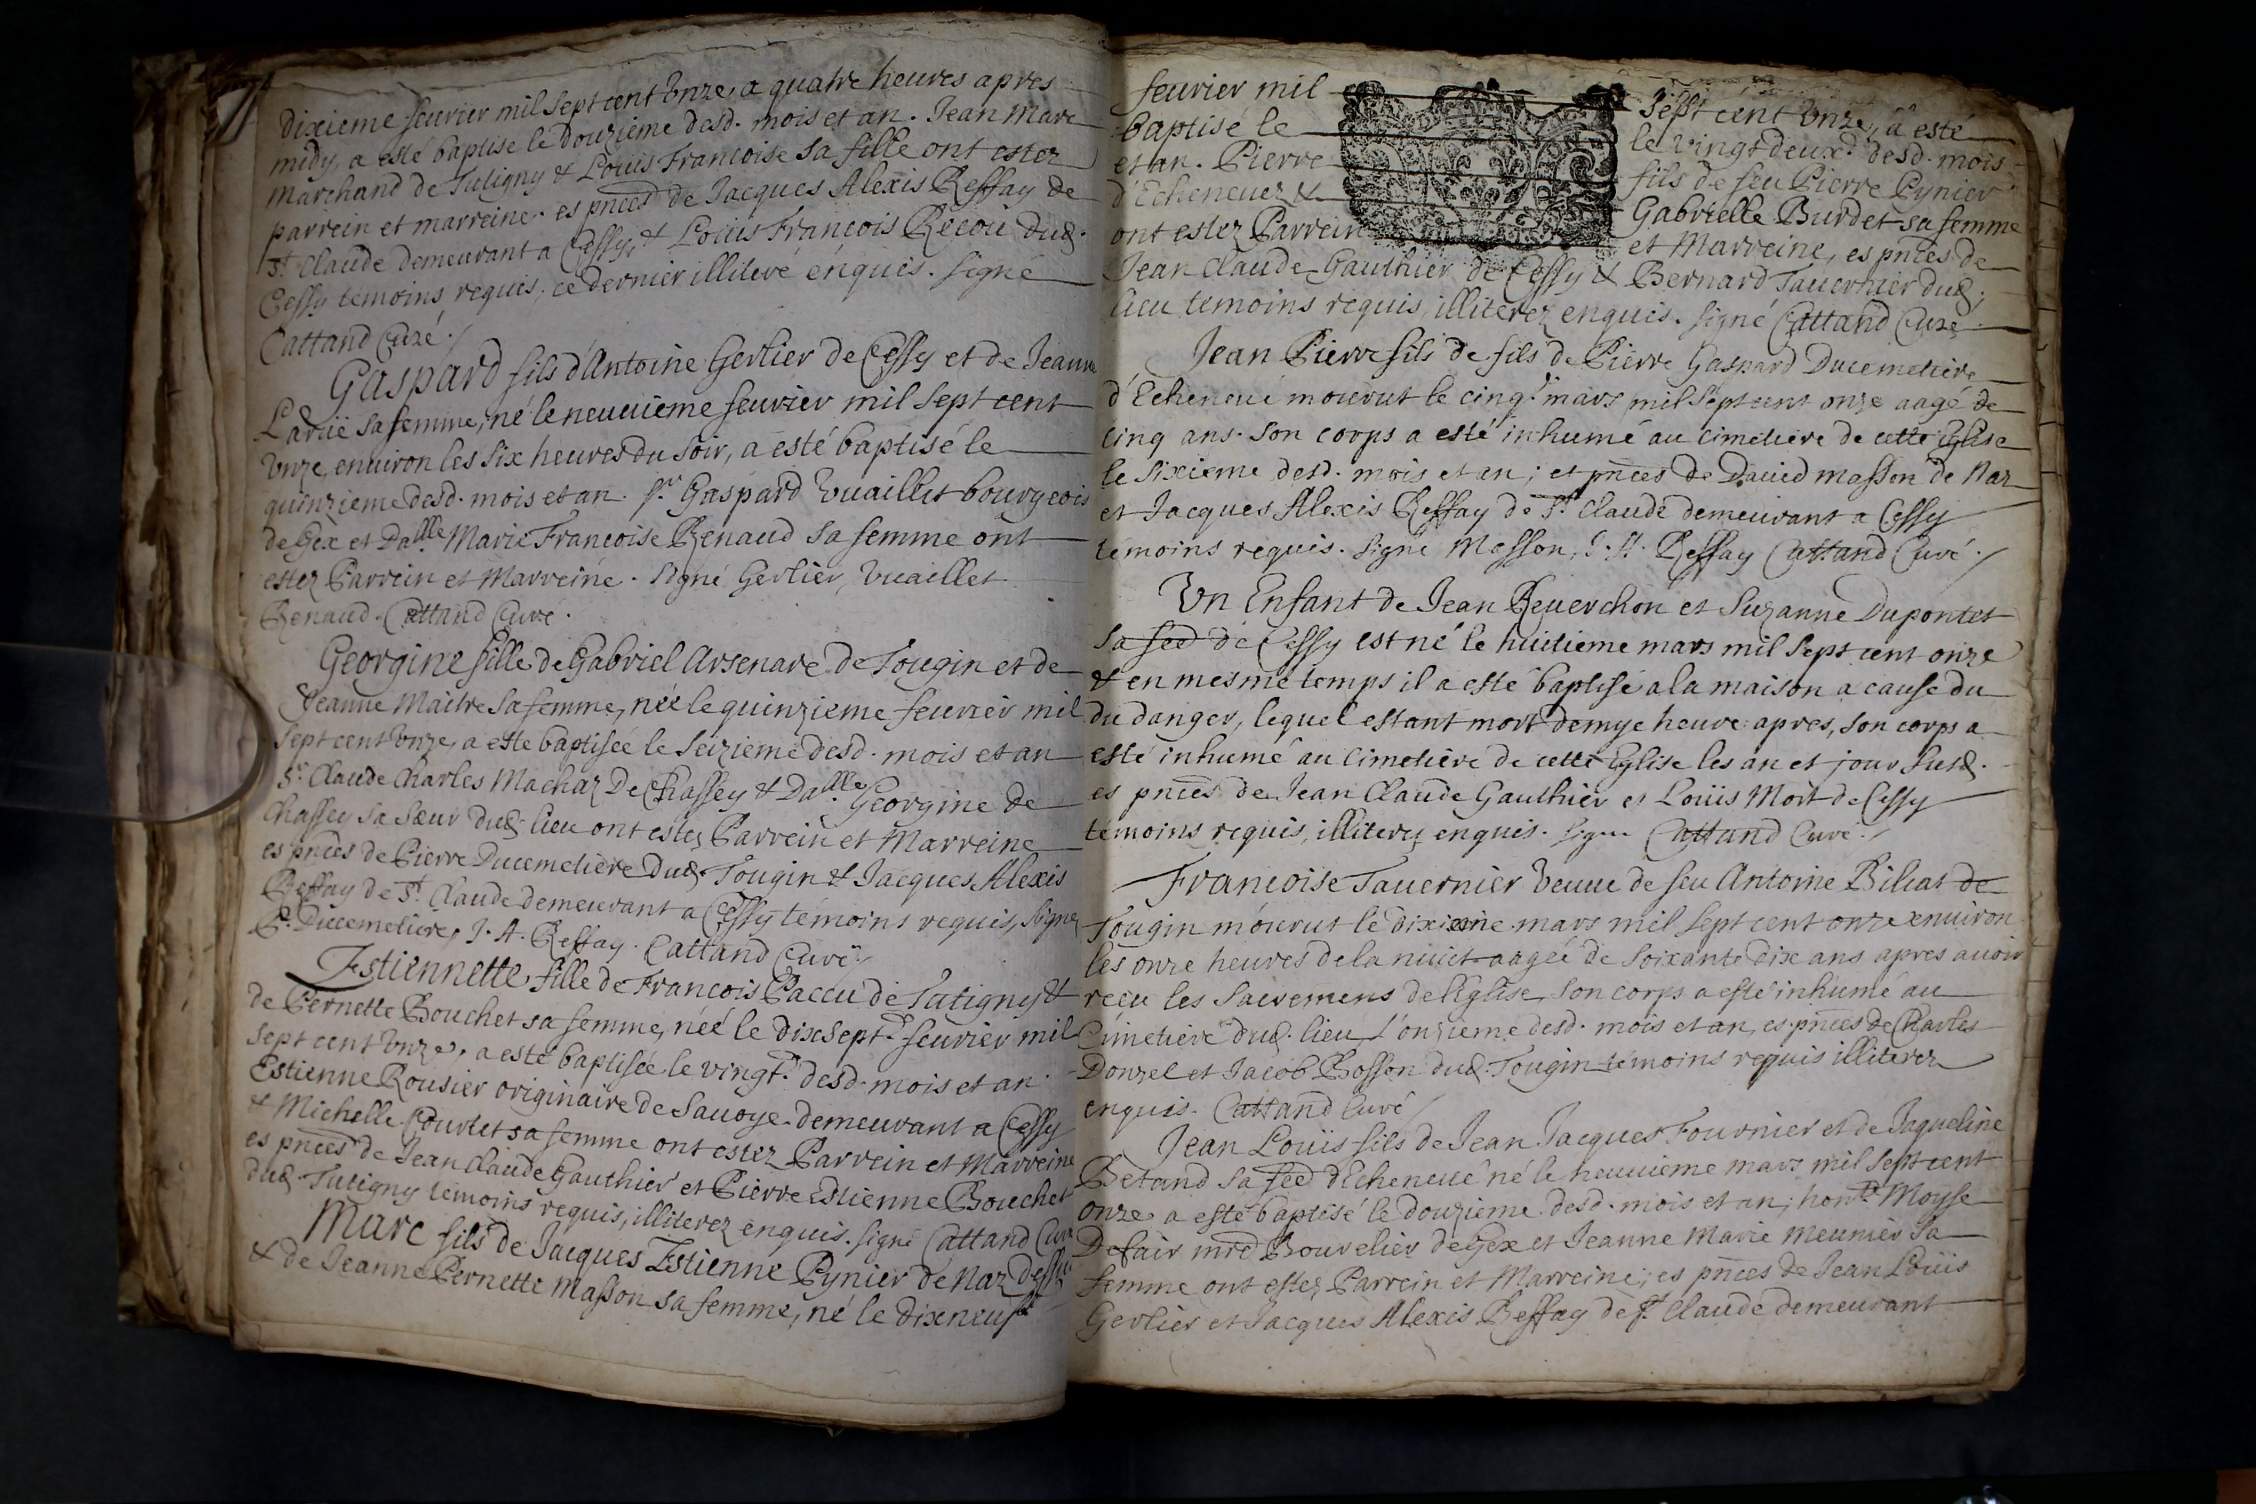 dixieme feurier mil sept cent Vnze, a quatre heures apres
midy, a esté baptise le douzieme desd. mois et an. Jean Marc
marchand de Tutigny & Louis Francoise sa fille ont estez
parrein et marreine. es pnces de Jacques Alexis Reffay de
St. Claude demeurant a Cessy, & Louis Francois Recoü dud.
Cessy temoins requis, ce dernier illiteré enquis. signé
Cattand Curé.
Gaspard fils d'Antoine Gerlier de Cessy et de Jeanne
sa femme, né le neuuieme feurier mil sept cent
Vnze, enuiron les six heures du soir, a esté baptisé le
quinzieme desd. mois et an. Sr. Gaspard Vuaillet bourgeois
de Gex et Dalle. Marie Francoise Renaud sa femme ont
estez Parrein et Marreine. Signé Gerlier, Vuaillet
Renaud. Cattand Curé.
Georgine fille de Gabriel Arsenare de Tougin et de
Jeanne Maitre sa femme, née le quinzieme feurier mil
sept cent Vnze, a este baptisée le seizieme desd. mois et an
Sr. Claude Charles Machaz De Chassey & Dalle. Georgine de
Chassey sa Sœur dud. lieu ont estez Parrein et Marreine
es pnces de Pierre Ducemetiere dud. Tougin & Jacques Alexis
Reffay de St. Claude demeurant a Cessy témoins requis, signez
P. Ducemetiere, J. A. Reffay. Cattand Curé
Estiennette fille de Francois Paccu de Tutigny &
de Pernette Bouchet sa femme, née le dix sept.e feurier mil
sept cent Vnze, a esté baptisée le vingt.e desd. mois et an.
Estienne Rousier originaire de Sauoye demeurant a Cessy
& Michelle Courlet sa femme ont estez Parrein et Marreine
es pnces de Jean Claude Gauthier et Pierre Estienne Bouchet
dud. Tutigny témoins requis, illiterez enquis. signé Cattand Curé
Marc fils de Jacques Estienne Pynier de Naz dessus
& de Jeanne Pernette Masson sa femme, né le dixneuf.e
feurier mil sept cent Vnze, a esté
baptisé le le vingt deux.e desd. mois
et an. Pierre fils de feu Pierre Pynier
d'Echeneuez & Gabrielle Burdet sa femme
ont estez Parrein et Marreine, es pnces de
Jean Claude Gauthier de Cessy & Bernard Tauernier dud.
lieu temoins requis, illiterez enquis. signé Cattand Curé.
Jean Pierre fils de fils de Pierre Gaspard Ducemetiere
d'Echeneué mourut le cinq.e mars mil sept cent onze aagé de
cinq ans. Son corps a esté inhumé au cimetiere de cette Eglise
le sixieme desd. mois et an; et pnces de Dauid masson de Naz
et Jacques Alexis Reffay de St. Claude demeurant a Cessy
témoins requis. Signé Masson, J. A. Reffay Cattand Curé.
Vn Enfant de Jean Reuerchon et Suzanne Dupontet
sa fee de Cessy est né le huitieme mars mil sept cent onze
& en mesme temps il a esté baptisé a la maison a cause du
du danger, lequel estant mort demye heure apres, son corps a
esté inhumé au Cimetiere de cette Eglise les an et jour susd.
es pnces de Jean Claude Gauthier et Loüis Mort de Cessy
témoins requis, illiterez enquis. Signé Cattand Curé.
Francoise Tauernier Veuue de feu Antoine Biliat de
Tougin mourut le dixieme mars mil sept cent onze enuiron
les onze heures de la nuict aagée de soixante dix ans apres auoir
recu les Sacremens de l'Eglise, son corps a esté inhumé au
Cimetiere dud. lieu L'onzieme desd. mois et an, es pnces de Charles
Donzel et Jacob Bosson dud. Tougin témoins requis illiterez
enquis. Cattand Curé
Jean Loüis fils de Jean Jacques Fournier et de Jaqueline
Betand sa fee d'Echeneué né le neuuieme mars mil sept cent
onze a esté baptisé le douzieme desd. mois et an, hon.te Moyse
Defair mrd Bourelier de Gex et Jeanne Marie Meunier sa
femme ont estez Parrein et Marreine; es pnces de Jean Loüis
Gerlier et Jacques Alexis Reffay de St. Claude demeurant